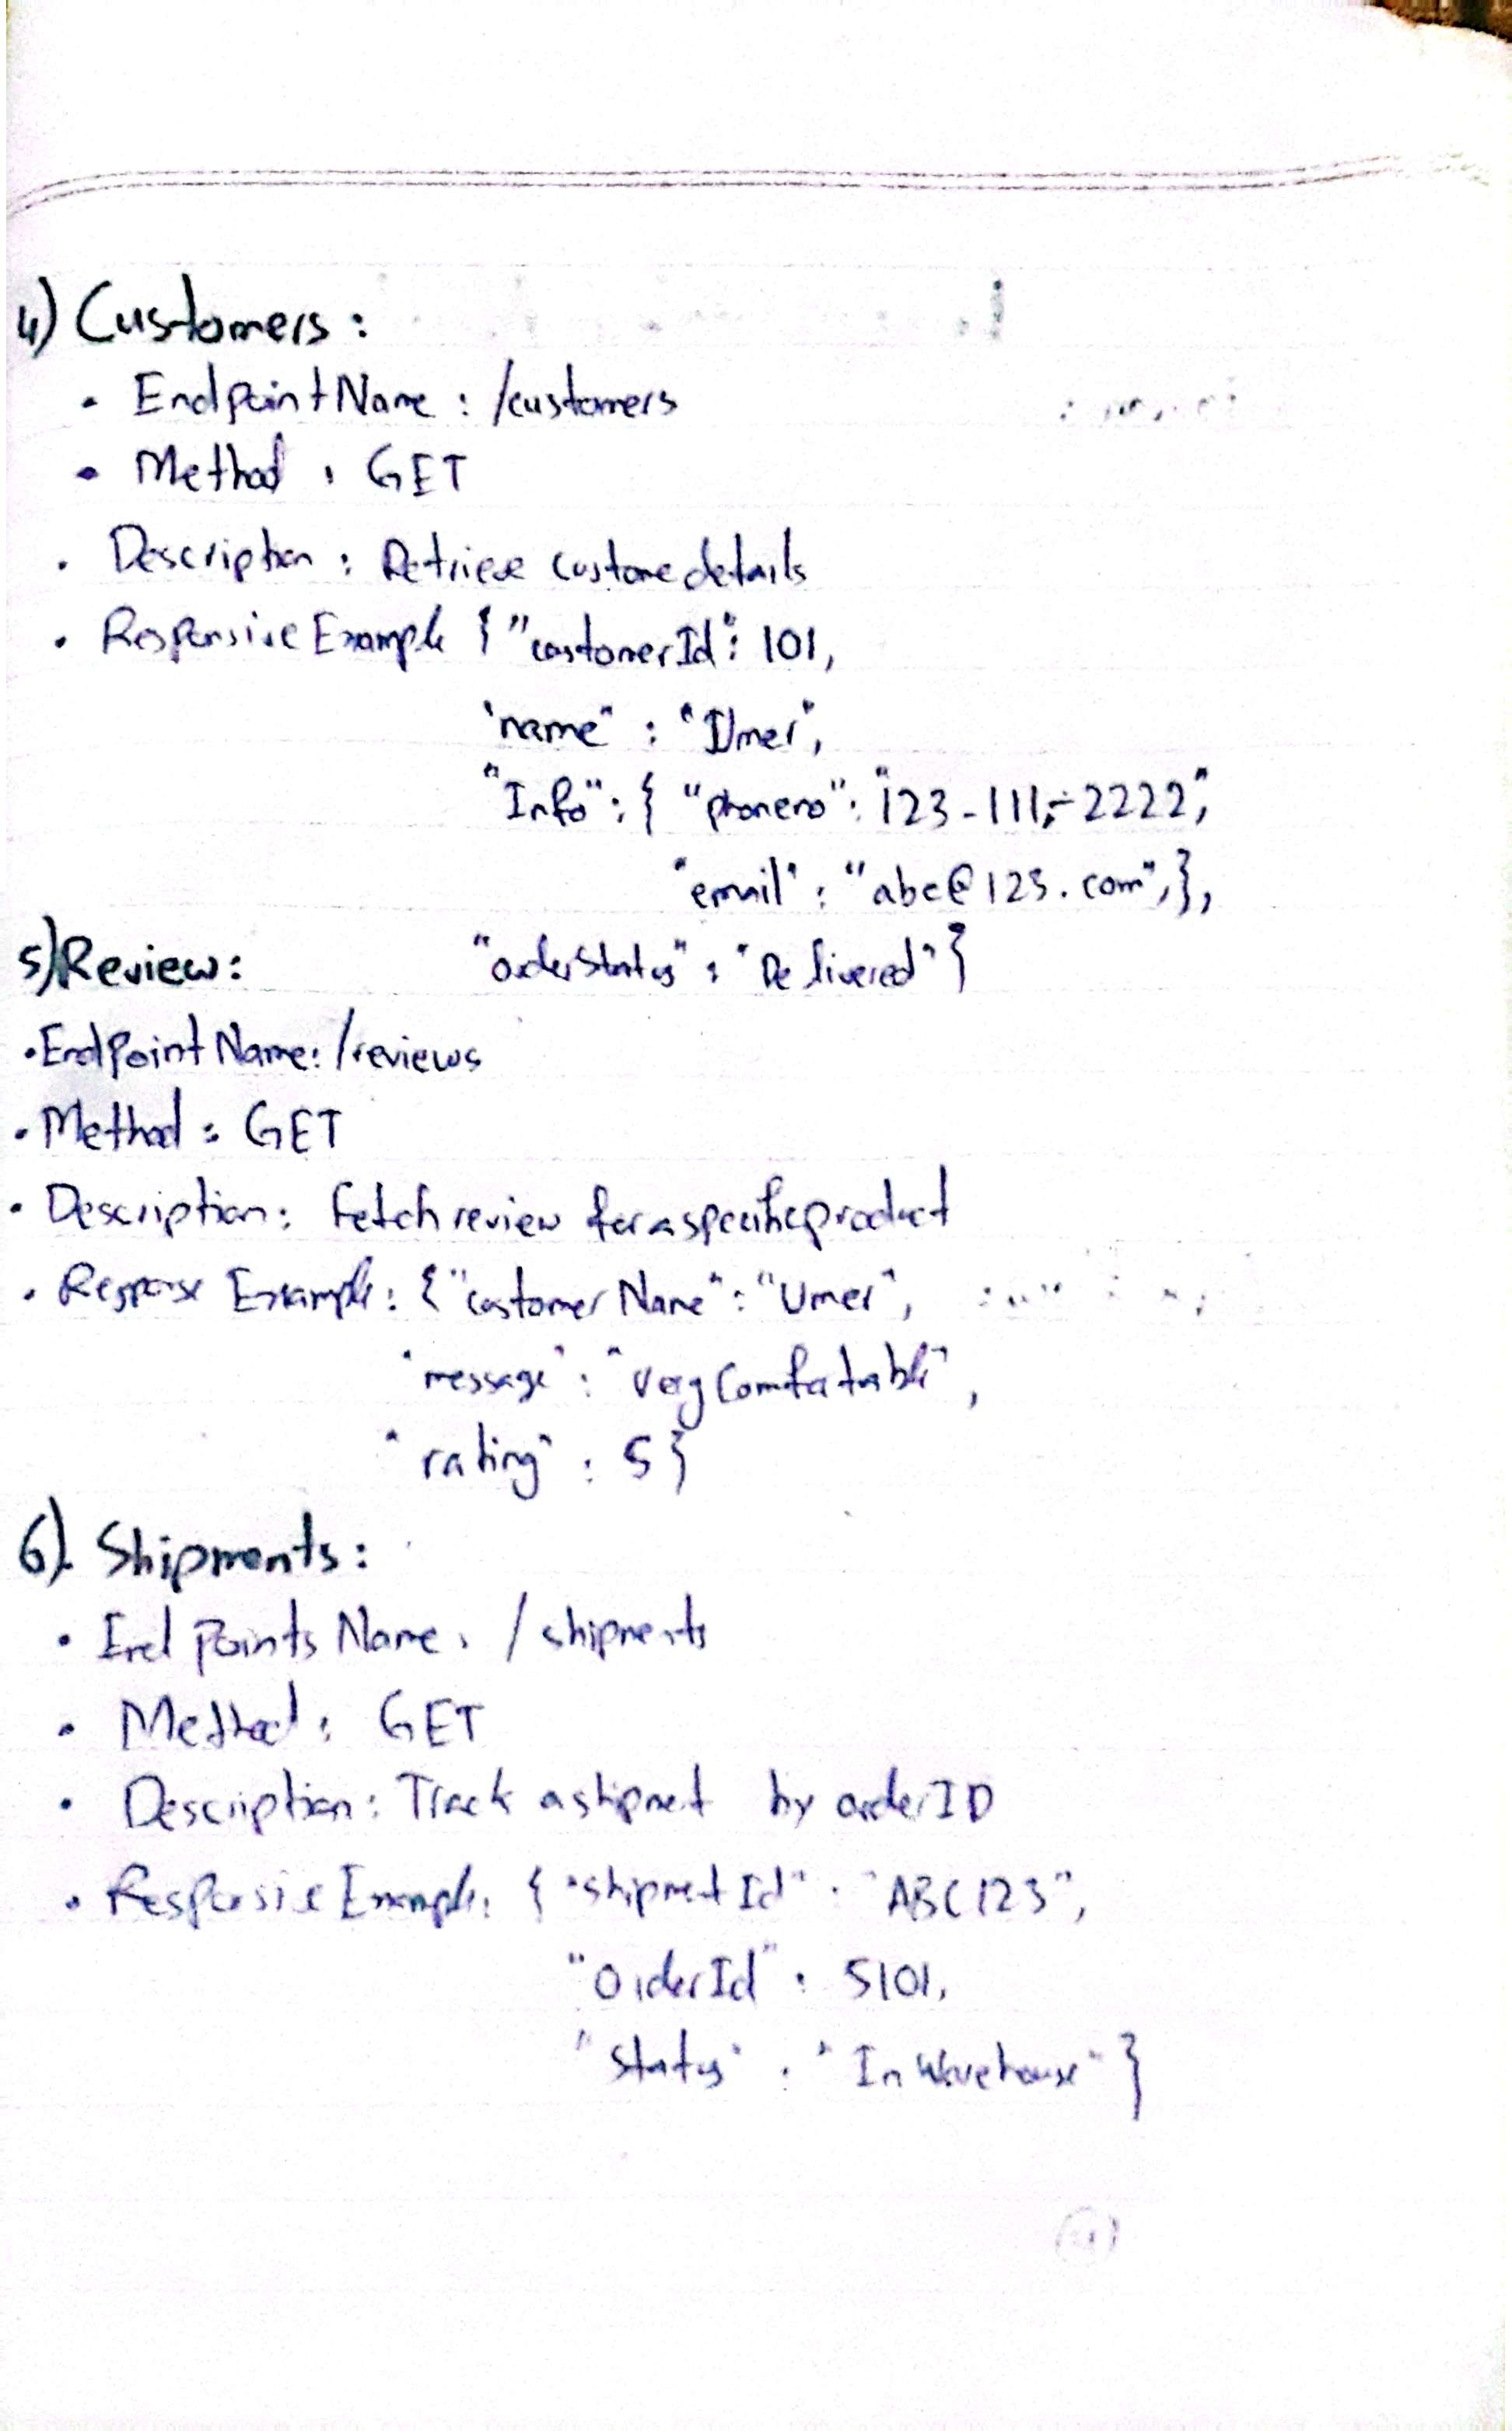 4) Customers :
• Endpoint Name : /customers
• Method : GET
• Description : Retrieve custome details
• Responsive Example { "customerId": 101,
"name" : "Umer",
"Info" : { "phoneno" : "123-111-2222",
"email" : "abc@123.com",},
"orderStatus" : "Delivered" }
5) Review :
• EndPoint Name: /reviews
• Method : GET
• Description : Fetch review for a specific product
• Response Example : { "customer Name" : "Umer",
"message" : "Very Comfortable",
"rating" : 5 }
6). Shipments :
• End Points Name : / shipments
• Method : GET
• Description : Track a shipmet by order ID
• Responsive Example : { "shipmet Id" : "ABC123",
"OrderId" : 5101,
"Status" : "In Warehouse" }